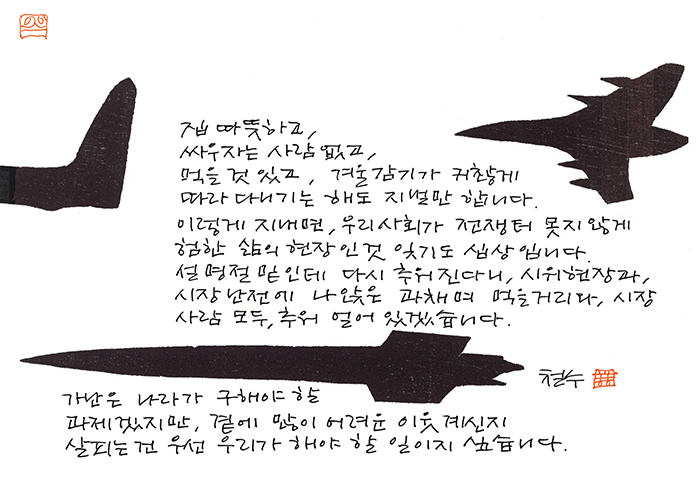 집 따뜻하고,
싸우자는 사람 없고,
먹을 것 있고, 겨울 감기가 귀찮게
따라 다니기는 해도 지낼만 합니다.
이렇게 지내면, 우리사회가 전쟁터 못지않게
험한 삶의 현장인것 잊기도 십상입니다.
설 명절 밑인데 다시 추워진다니, 시위현장과,
시장 난전에 나앉은 과채며 먹을거리와, 시장
사람 모두, 추위 얼어 있겠습니다.
철수
가난은 나라가 구해야 할
과제겠지만, 곁에 많이 어려운 이웃 계신지
살피는건 우선 우리가 해야 할 일이지 싶습니다.